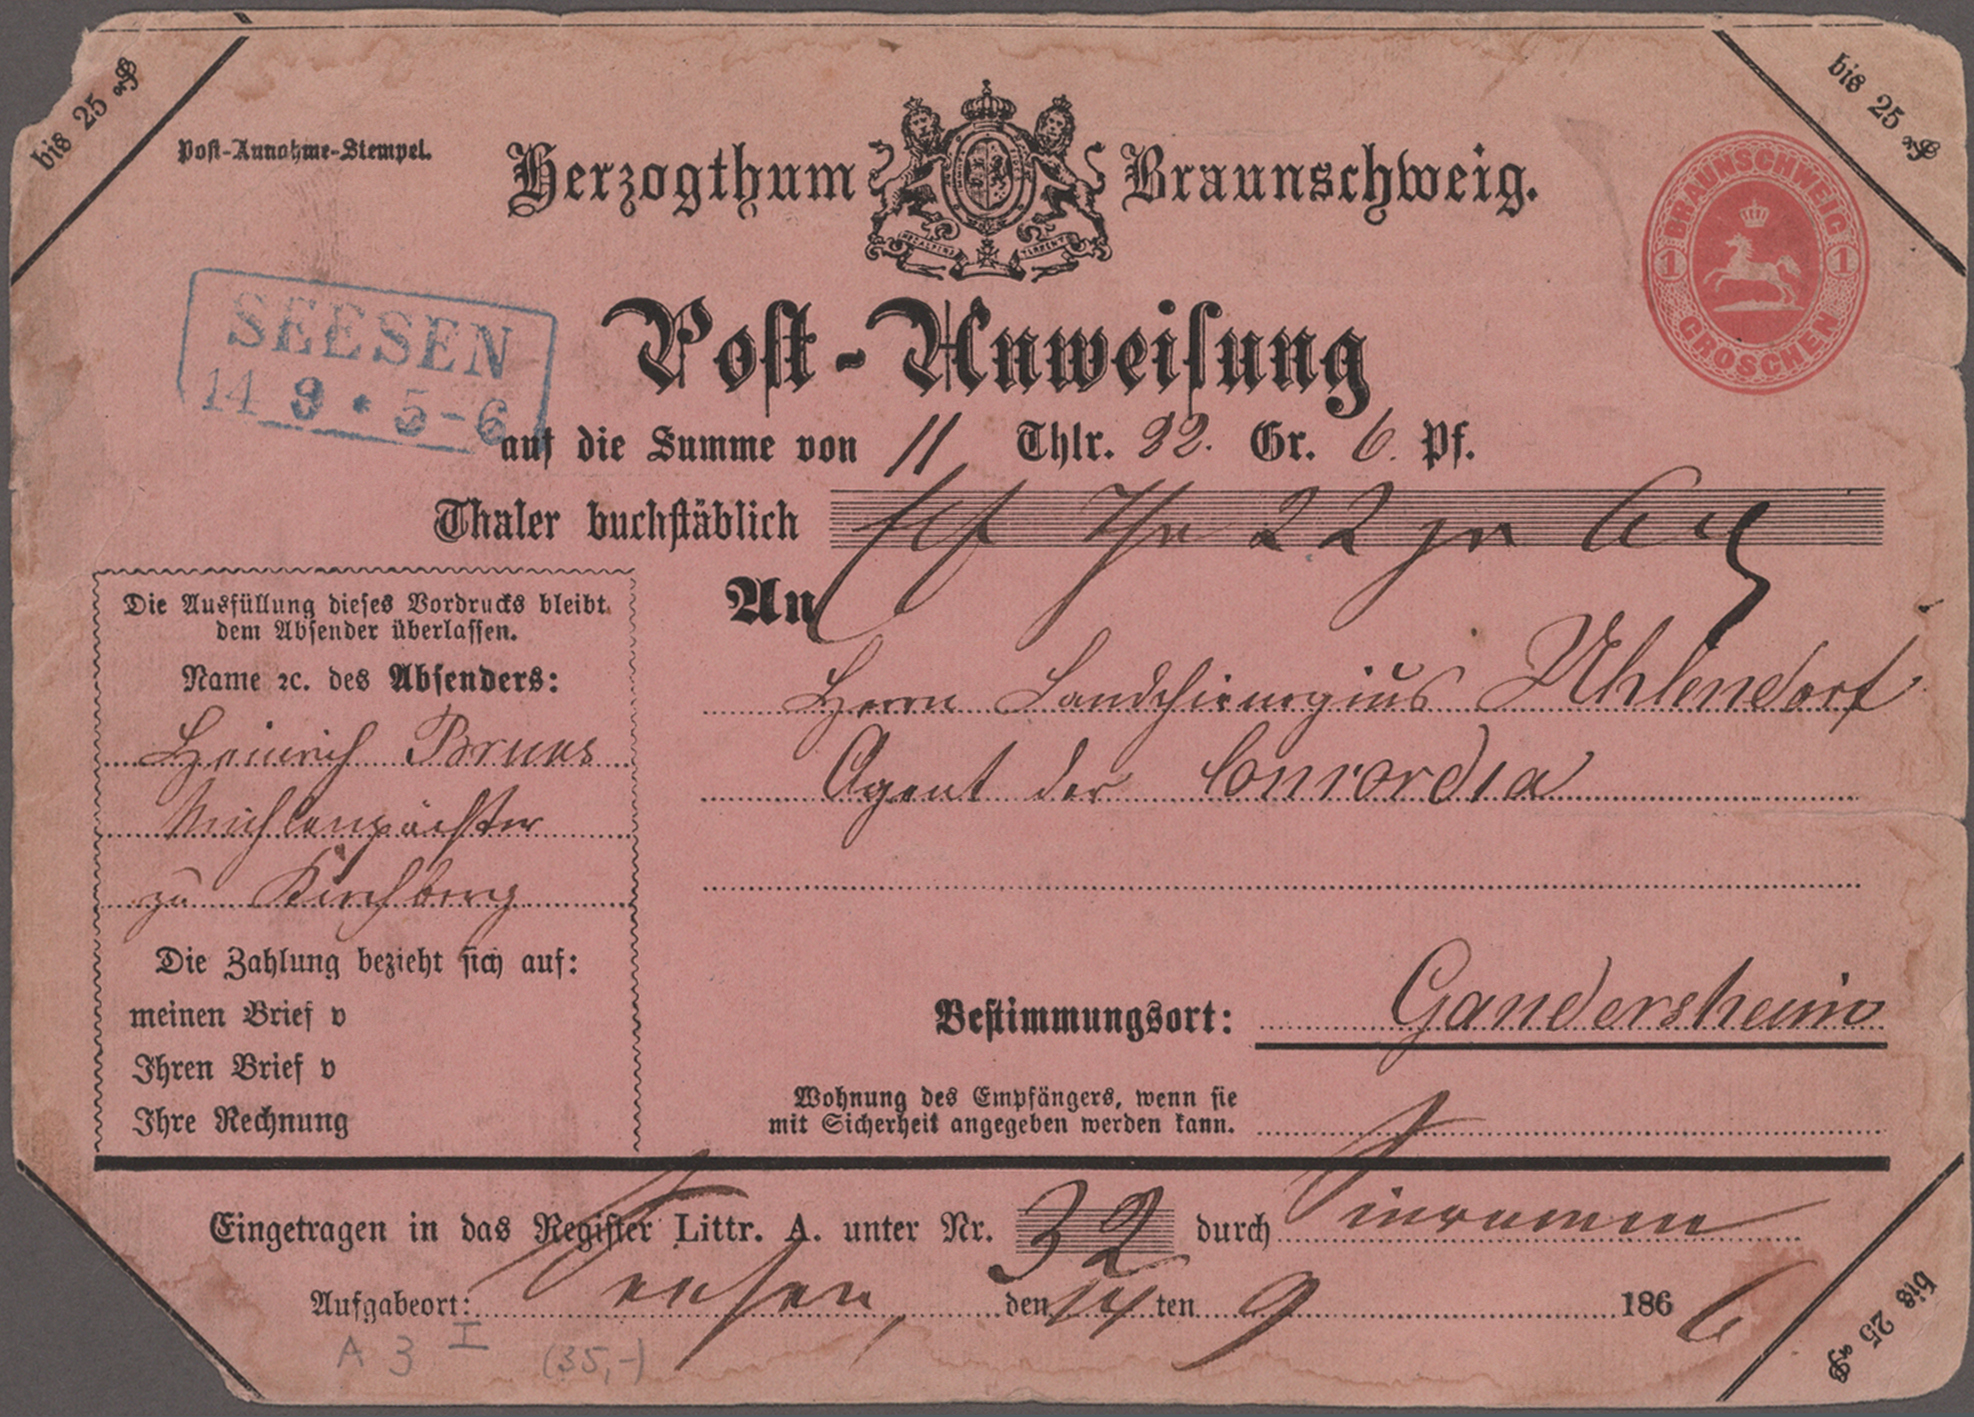 bis 25 ₰
bis 25 ₰
Post-Annahme-Stempel.
Herzogthum Braunschweig.
BRAUNSCHWEIG
1 1
GROSCHEN
NEC ASPERA TERRENT
SEESEN
14 9 * 5-6
Post-Anweisung
auf die Summe von 11 Thlr. 22. Gr. 6. Pf.
Thaler buchstäblich Elf Thr 22 gr 6 ₰
Die Ausfüllung dieses Vordrucks bleibt
dem Absender überlassen.
Name ꝛc. des Absenders:
Heinrich Brunes
Mühlenpächter
zu Kirchberg
Die Zahlung bezieht sich auf:
meinen Brief v
Ihren Brief v
Ihre Rechnung
An
Herrn Landchirurgius Uhlendorf
Agent der Concordia
Bestimmungsort: Gandersheim
Wohnung des Empfängers, wenn sie
mit Sicherheit angegeben werden kann.
Eingetragen in das Register Littr. A. unter Nr. 32 durch
Aufgabeort: Seesen, den 14 ten 9 1866
bis 25 ₰
A 3 I (35,-)